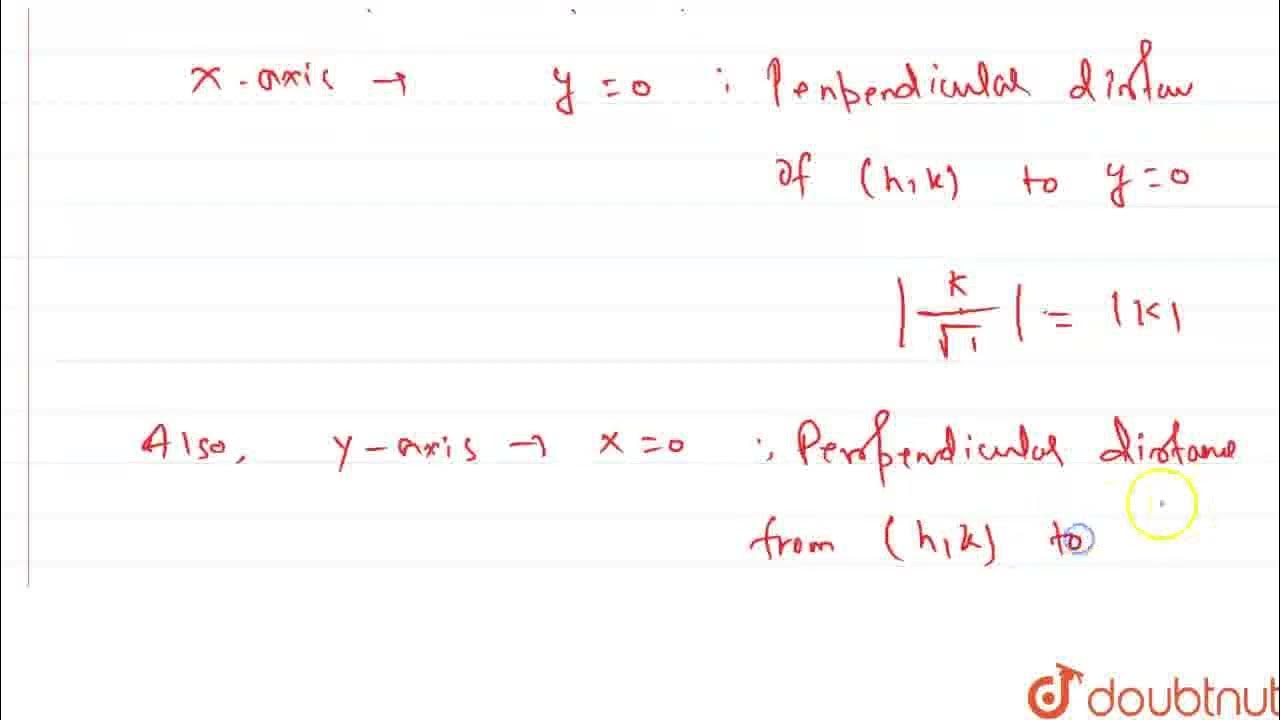 x-axis → y = 0 : Penpendicular distan
of (h,k) to y = 0
|k/√1| = |k|
Also, y-axis → x = 0 ∴ Perpendicular distance
from (h,k) to
doubtnut